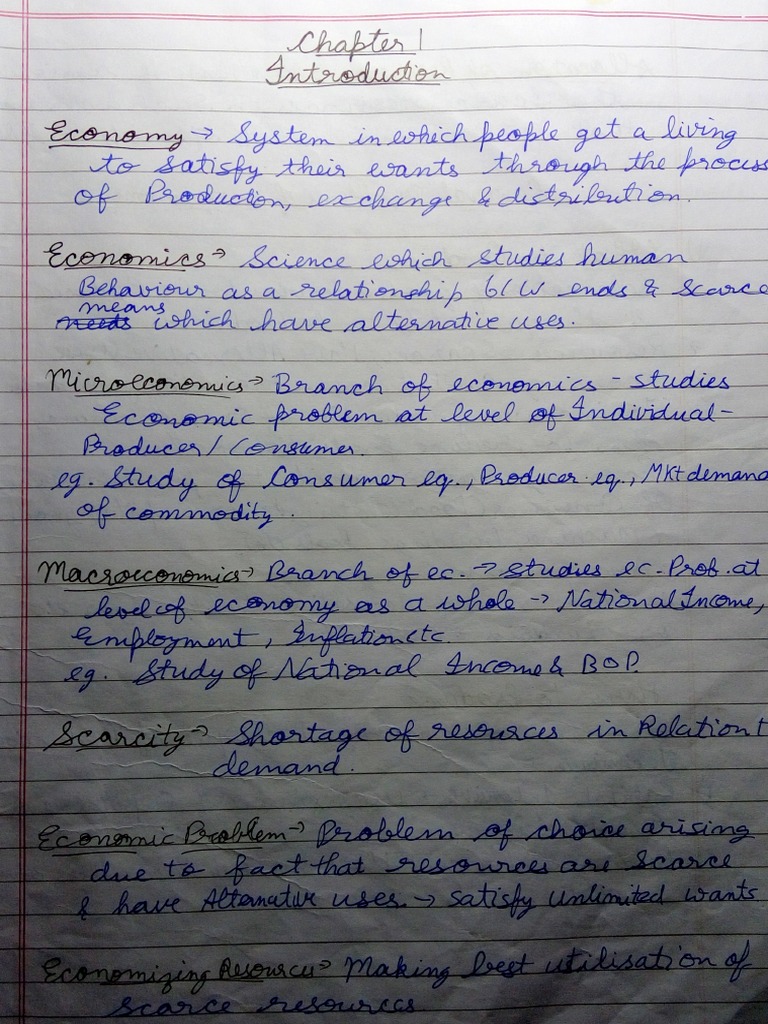 Chapter 1
Introduction
Economy → System in which people get a living
to satisfy their wants through the process
of Production, exchange & distribution.
Economics → Science which studies human
Behaviour as a relationship b/w ends & scarce
means
needs which have alternative uses.
Microeconomics → Branch of economics - studies
Economic problem at level of Individual -
Producer / Consumer.
eg. Study of Consumer eq., Producer eq., Mkt demand
of commodity.
Macroeconomics → Branch of ec. → studies ec. Prob. at
level of economy as a whole → National Income,
Employment, Inflation etc.
eg. Study of National Income & BOP.
Scarcity → Shortage of resources in Relation t
demand.
Economic Problem → Problem of choice arising
due to fact that resources are scarce
& have Alternative uses. → satisfy unlimited wants
Economizing Resources → Making best utilisation of
scarce resources